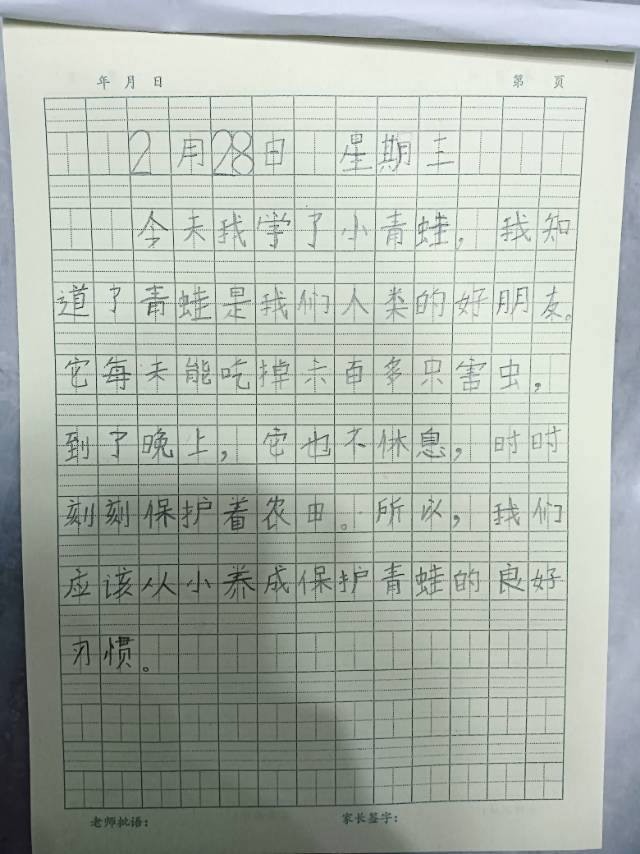 年 月 日 第 页
2月28日 星期三
今天我学了小青蛙，我知
道了青蛙是我们人类的好朋友。
它每天能吃掉六百多只害虫，
到了晚上，它也不休息，时时
刻刻保护着农田。所以，我们
应该从小养成保护青蛙的良好
习惯。
老师批语： 家长签字：